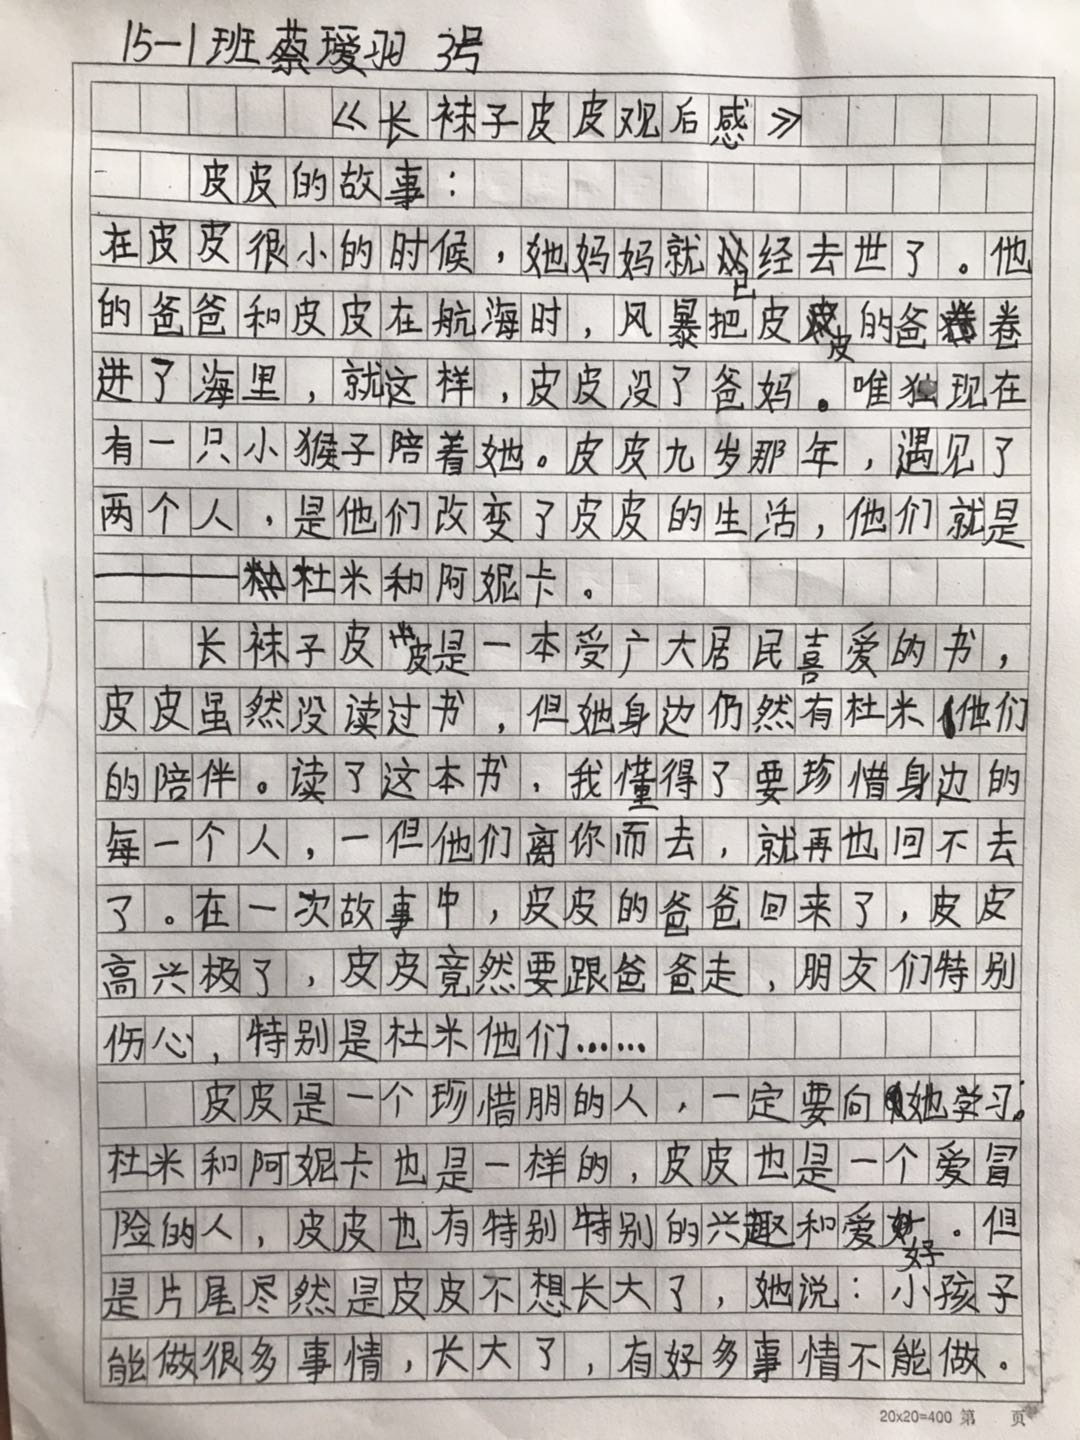 15-1班蔡瑷羽 3号
《长袜子皮皮观后感》
皮皮的故事：
在皮皮很小的时候，她妈妈就已经去世了。他
的爸爸和皮皮在航海时，风暴把皮皮的爸卷
进了海里，就这样，皮皮没了爸妈。唯独现在
有一只小猴子陪着她。皮皮九岁那年，遇见了
两个人，是他们改变了皮皮的生活，他们就是
———杜米和阿妮卡。
长袜子皮皮是一本受广大居民喜爱的书，
皮皮虽然没读过书，但她身边仍然有杜米他们
的陪伴。读了这本书，我懂得了要珍惜身边的
每一个人，一但他们离你而去，就再也回不去
了。在一次故事中，皮皮的爸爸回来了，皮皮
高兴极了，皮皮竟然要跟爸爸走，朋友们特别
伤心，特别是杜米他们……
皮皮是一个珍惜朋的人，一定要向她学习。
杜米和阿妮卡也是一样的，皮皮也是一个爱冒
险的人，皮皮也有特别特别的兴趣和爱好。但
是片尾尽然是皮皮不想长大了，她说：小孩子
能做很多事情，长大了，有好多事情不能做。
20x20=400 第 页